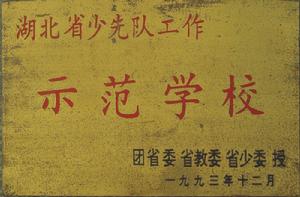 湖北省少先队工作
示范学校
团省委 省教委 省少委 授
一九九三年十二月